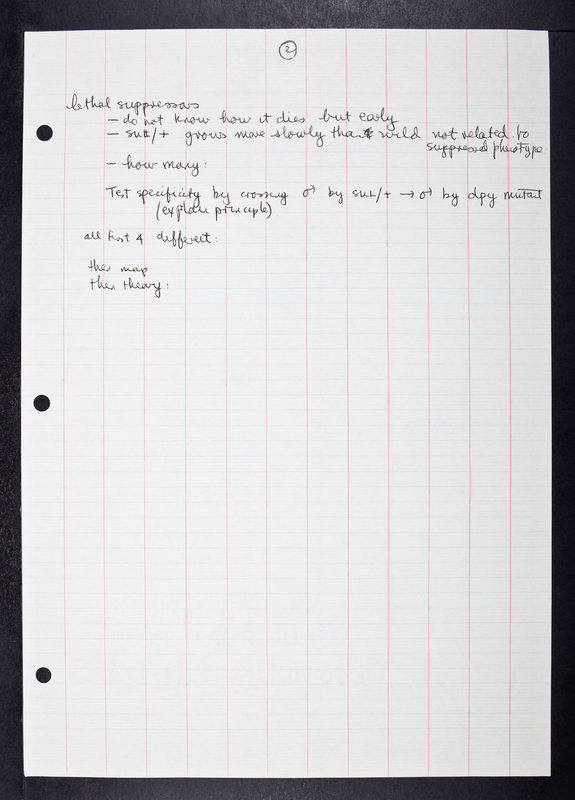 2
lethal suppressors
- do not know how it dies but early
- su⊥/+ grows more slowly than wild not related to
suppressed phenotype.
- how many:
Test specificity by crossing ♂ by su⊥/+ → ♂ by dpy mutant
(explain principle)
all first 4 different:
then map
then theory: